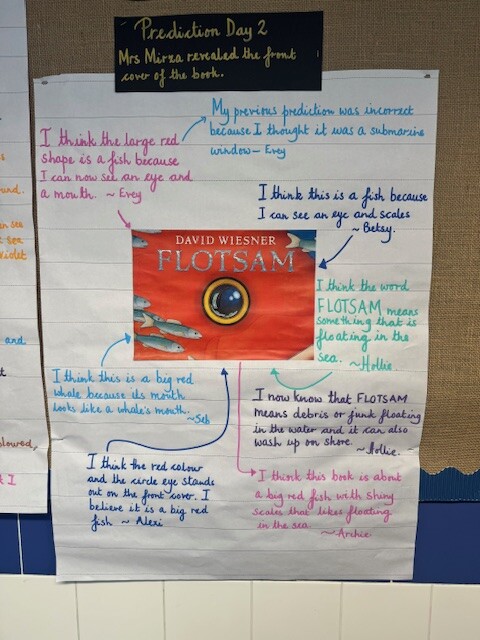 Prediction Day 2
Mrs Mirza revealed the front
cover of the book.
My previous prediction was incorrect
because I thought it was a submarine
window - Evey
I think the large red
shape is a fish because
I can now see an eye and
a mouth. ~ Evey
I think this is a fish because
I can see an eye and scales
~ Betsy.
DAVID WIESNER
FLOTSAM
I think the word
FLOTSAM means
something that is
floating in the
sea. ~ Hollie
I think this is a big red
whale because its mouth
looks like a whale's mouth.
~Seb
I now know that FLOTSAM
means debris or junk floating
in the water and it can also
wash up on shore. ~ Hollie.
I think the red colour
and the circle eye stands
out on the front cover. I
believe it is a big red
fish ~ Alexi
I think this book is about
a big red fish with shiny
scales that likes floating
in the sea.
~ Archie
and